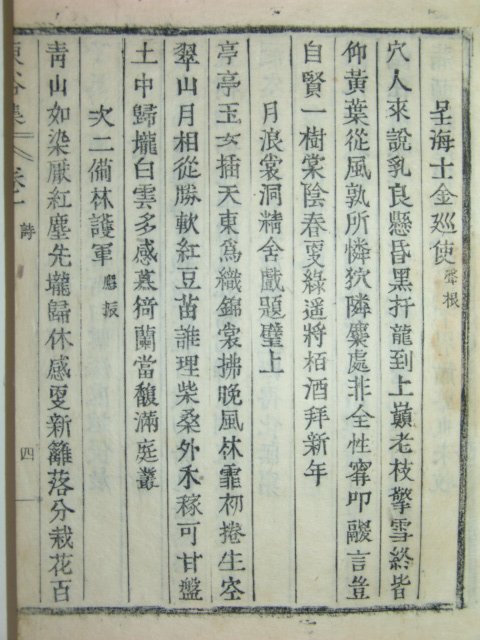 呈海士金巡使 聲根
穴人來說乳良懸昏黑扞龍到上巔老枝擎雪終皆
仰黃葉從風孰所憐狖隣麋處非全性寗叩礙言豈
自賢一樹棠陰春更綠遥將栢酒拜新年
月浪裳洞精舍戱題壁上
亭亭玉女揷天東爲織錦裳拂晚風林霏初捲生空
翠山月相從勝軟紅豆苗誰理柴桑外禾稼可甘盤
土中歸壠白雲多感慕猗蘭當馥滿庭叢
次二衛林護軍 振
靑山如染厭紅塵先壠歸休感更新籬落分栽花百
集 卷一 詩 四